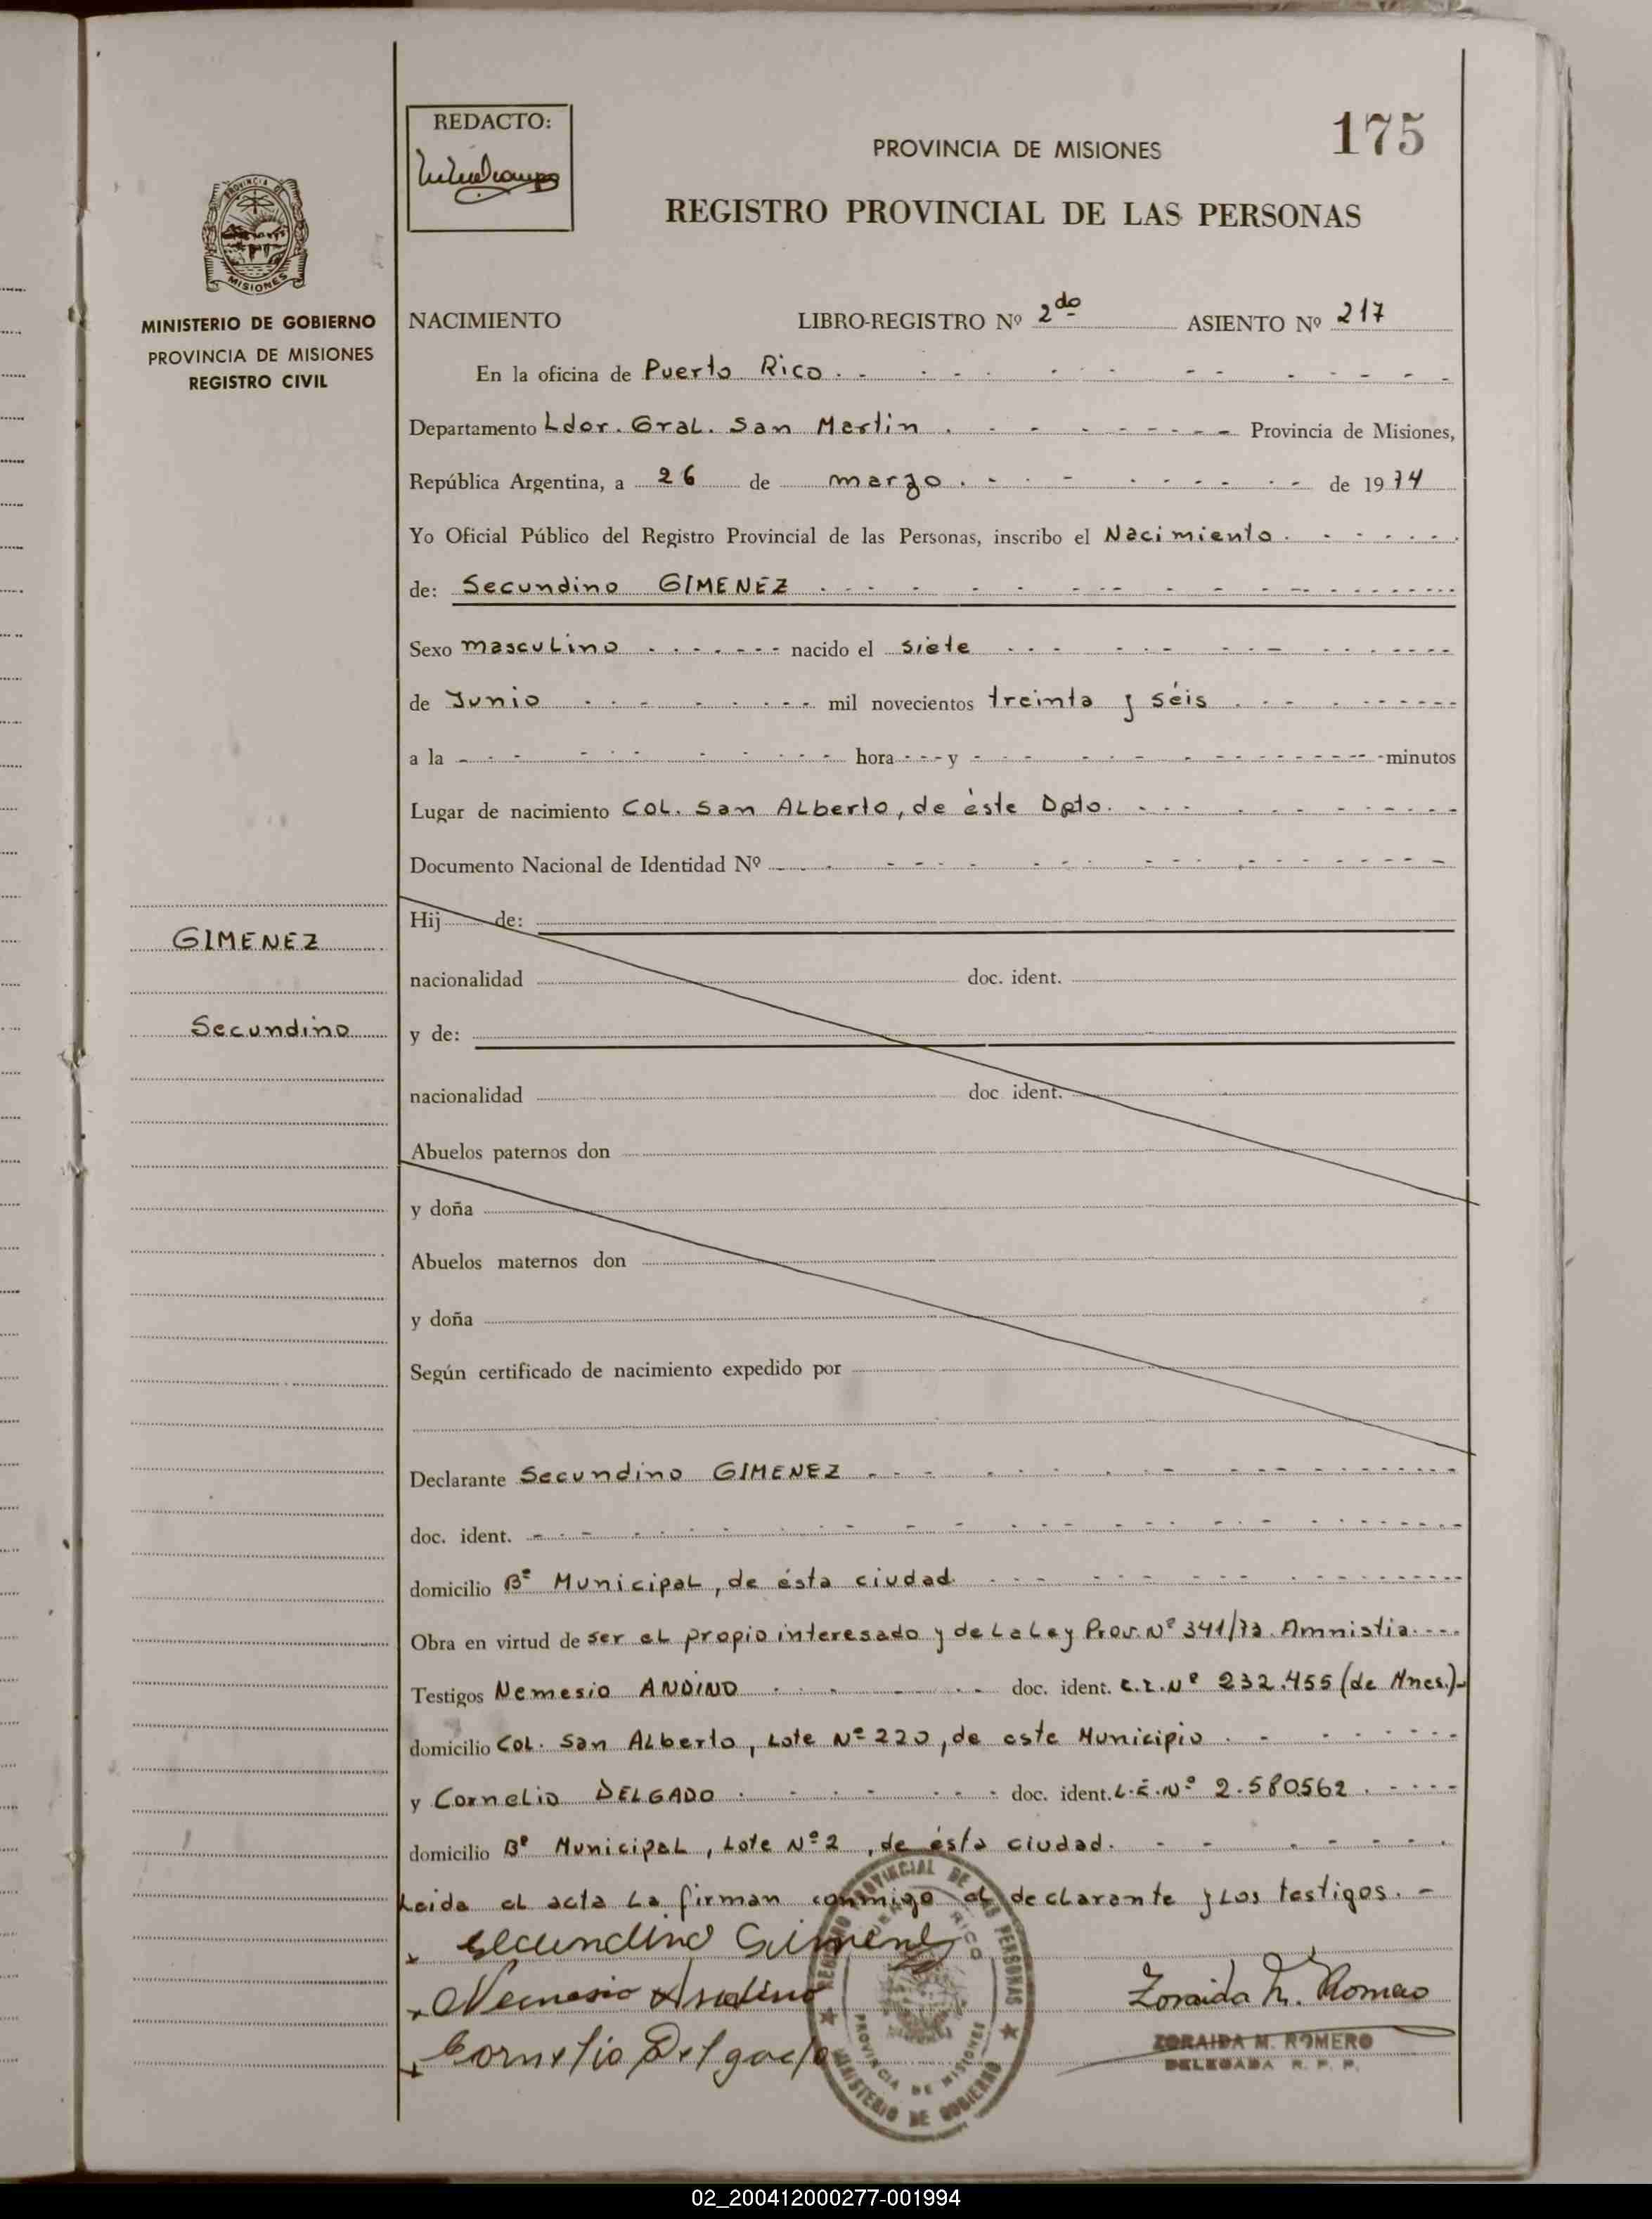 REDACTO:
175
PROVINCIA DE MISIONES
REGISTRO PROVINCIAL DE LAS PERSONAS
PROVINCIA DE
MISIONES
MINISTERIO DE GOBIERNO
PROVINCIA DE MISIONES
REGISTRO CIVIL
NACIMIENTO LIBRO-REGISTRO Nº 2do ASIENTO Nº 217
En la oficina de Puerto Rico.
Departamento Ldor. Gral. San Martin. Provincia de Misiones,
República Argentina, a 26 de marzo. de 1974
Yo Oficial Público del Registro Provincial de las Personas, inscribo el Nacimiento.
de: Secundino GIMENEZ
Sexo masculino nacido el siete
de Junio mil novecientos treinta y séis
a la hora y minutos
Lugar de nacimiento Col. San Alberto, de éste Dpto.
Documento Nacional de Identidad Nº
Hij de:
GIMENEZ
nacionalidad doc. ident.
Secundino
y de:
nacionalidad doc ident.
Abuelos paternos don
y doña
Abuelos maternos don
y doña
Según certificado de nacimiento expedido por
Declarante Secundino GIMENEZ
doc. ident.
domicilio Bº Municipal, de ésta ciudad.
Obra en virtud de ser el propio interesado y de La Ley Prov. Nº 341/73. Amnistia.
Testigos Nemesio ANDINO doc. ident. C.I. Nº 232.455 (de Mnes.)
domicilio Col. San Alberto, Lote Nº 220, de este Municipio
y Cornelio DELGADO doc. ident. L.E. Nº 2.580562
domicilio Bº Municipal, Lote Nº 2, de ésta ciudad.
Leida el acta la firman conmigo el declarante y los testigos.
Secundino Gimenez
Nemesio Andino
Cornelio Delgado
Zoraida M. Romero
ZORAIDA M. ROMERO
DELEGADA R. P. P.
REGISTRO PROVINCIAL DE LAS PERSONAS
PUERTO RICO
PROVINCIA DE MISIONES
MINISTERIO DE GOBIERNO
02_200412000277-001994